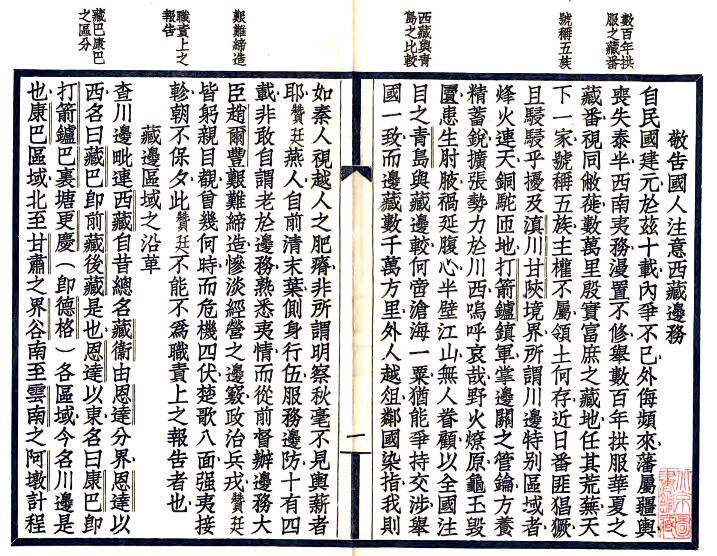 數百年拱
服之藏番
號稱五族
西藏與青
島之比較
敬告國人注意西藏邊務
自民國建元於玆十載內爭不已外侮頻來藩屬疆輿
喪失泰半西南夷務漫置不修舉數百年拱服華夏之
藏番視同敝蓰數萬里殷實富庶之藏地任其荒蕪天
下一家號稱五族主權不屬領土何存近日番匪猖獗
且駸駸乎擾及滇川甘陝境界所謂川邊特别區域者
烽火連天銅駝匝地打箭鑪鎮軍掌邊關之管鑰方養
精蓄銳擴張勢力於川西嗚呼哀哉野火燎原龜玉毀
匵患生肘腋禍延腹心半壁江山無人眷顧以全國注
目之青島與藏邊較何啻滄海一粟猶能爭持交涉舉
國一致而邊藏數千萬方里外人越俎鄰國染指我則
一
艱難締造
職責上之
報告
藏巴康巴
之區分
如秦人視越人之肥瘠非所謂明察秋毫不見輿薪者
耶贊廷燕人自前清末葉側身行伍服務邊防十有四
載非敢自謂老於邊務熟悉夷情而從前督辦邊務大
臣趙爾豐艱難締造慘淡經營之邊竅政治兵戎贊廷
皆躬親目覩曾幾何時而危機四伏楚歌八面强夷接
軫朝不保夕此贊廷不能不爲職責上之報告者也
藏邊區域之沿革
查川邊毗連西藏自昔總名藏衞由恩達分界恩達以
西名曰藏巴卽前藏後藏是也恩達以東名曰康巴卽
打箭鑪巴裏塘更慶（卽德格）各區域今名川邊是
也康巴區域北至甘肅之界谷南至雲南之阿墩計程